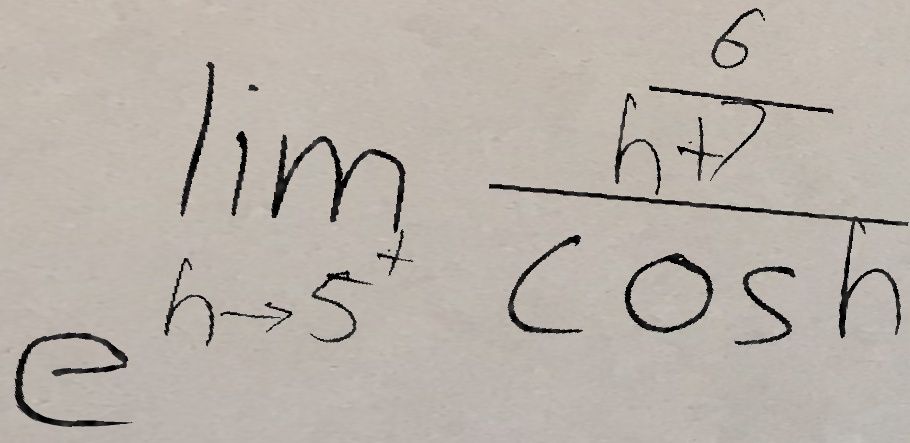 e^{\lim_{h \to 5^+} \frac{\frac{6}{h+7}}{\cos h}}